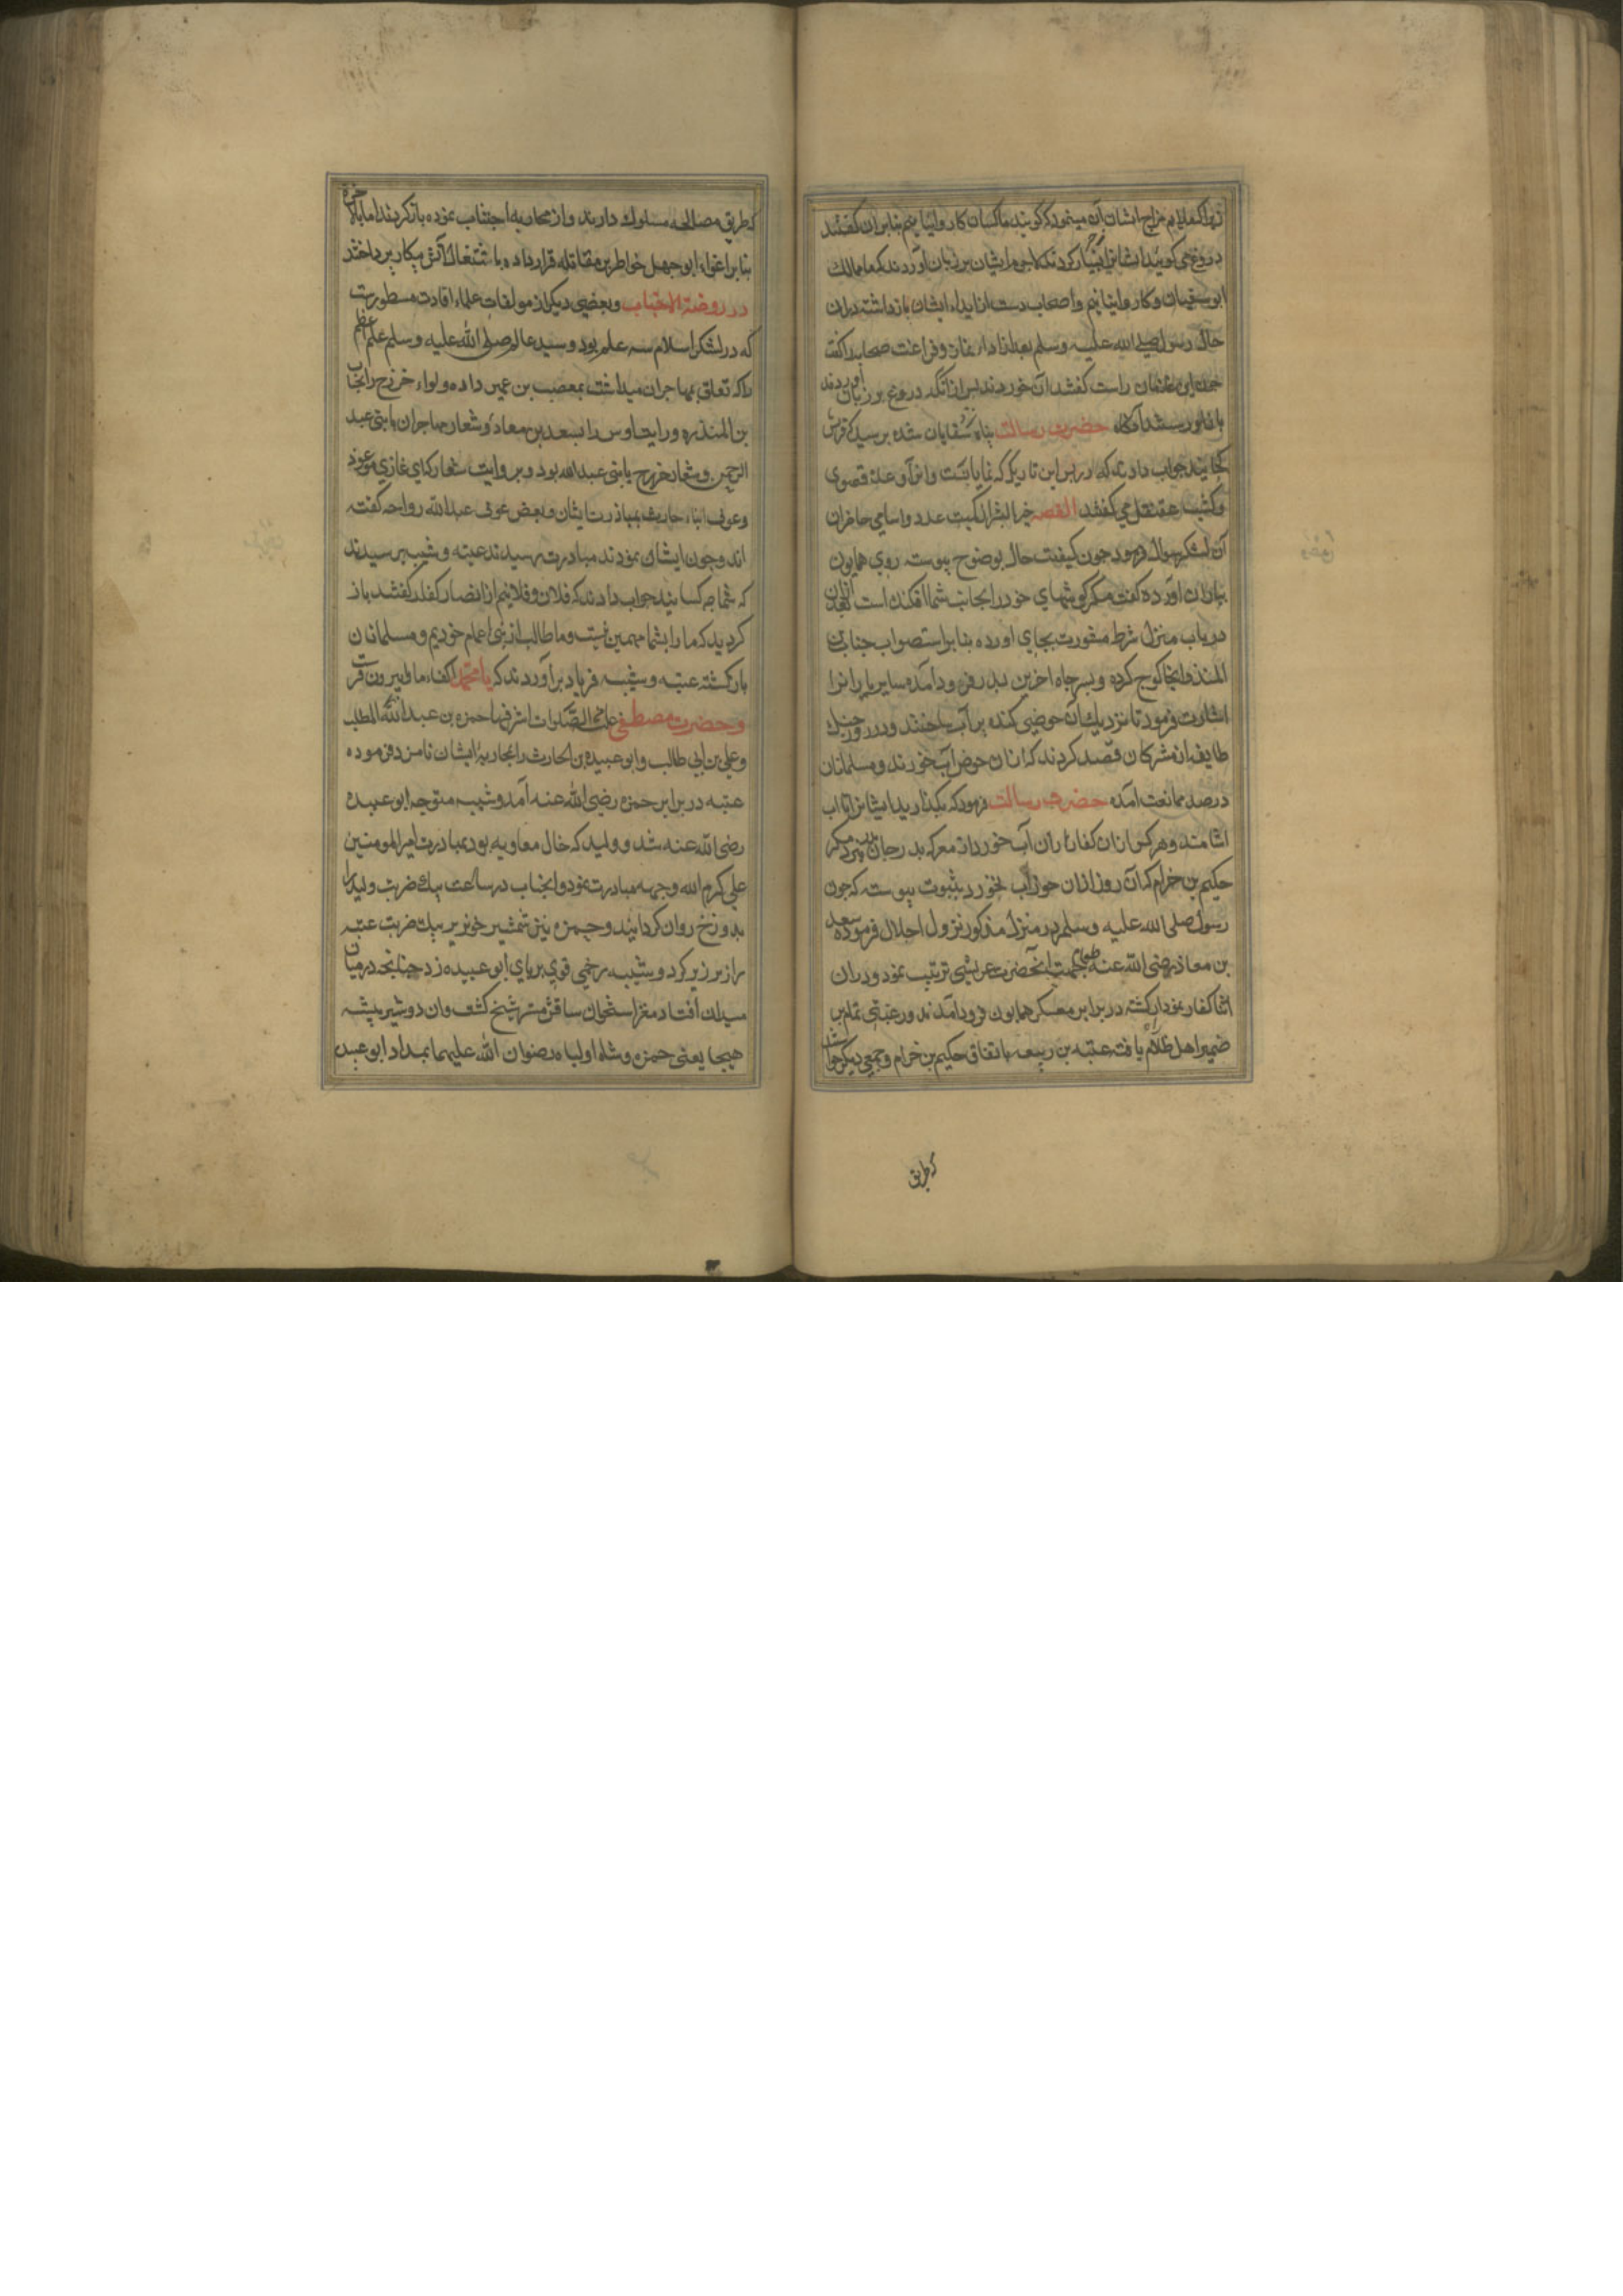 زیرا که ملایم مزاج ایشان آن مینمود که گویند ما کسان کاروانیانیم بنابران گفتند
دروغ می گویند ایشانرا بسیار کردند لاجرم ایشان بر زبان آوردند که ما مالک
ابوسفیان و کاروانیانیم و اصحاب دست از ایذاء ایشان بازداشته دران
حال رسول صلی الله علیه وسلم بعد از ادای نماز و فراغت صحابه را گفت
چون این غلامان راست گفتند آن خوردند پس از آنکه دروغ بر زبان آوردند
حضرت رسالت پناه پرسید که قریش
کجایند جواب دادند که در پس این تل ریک که نمایانست و انرا وعدۀ قصوی
و کثیب عقنقل می گفتند القصه خیر البشر از کمیت عدد و اسامی حاضران
آن لشکر سوال فرمود چون کیفیت حال بوضوح پیوست روی همایون
بیاران آورده گفت مکه گوشهای خود را بجانب شما افکنده است بعد ازان
در باب منزل شرط مشورت بجای اورده بنابر استصواب جناب بن
المنذر از انجا کوچ کرده و بسر چاه اخرین بدر فرود آمده سایر یارانرا
اشارت فرمود تا نزدیک آن حوضی کنده پر آب ساختند و در روز جنک
طایفه از مشرکان قصد کردند که ازان حوض آب خورند و مسلمانان
درصدد ممانعت آمده حضرت رسالت فرمود که بکذارید ایشانرا تا اب
اشامند و هر کس ازان کفار ازان آب خورد از معرکه بدر جان نبرد مکر
حکیم بن خرام که آن روز ازان حوض آب نخورد بثبوت پیوسته که چون
رسول صلی الله علیه وسلم در منزل مذکور نزول اجلال فرموده سعد
بن معاذ رضی الله عنه جهت آنحضرت عریشی ترتیب نمود و دران
اثنا کفار نمودار کشته در برابر معسکر همایون فرود آمدند و رعبی تمام بر
ضمیر اهل ظلام یافت عتبه بن ربیعه باتفاق حکیم بن خرام و جمعی دیکر خواستند
که طریق
که طریق مصالحه مسلوک دارند و از محاربه اجتناب نموده باز کردند اما بالاخره
بنابر اغواء ابوجهل خاطر بر مقاتله قرار داده باشتغال آتش پیکار پرداختند
در روضة الاحباب و بعضی دیکر از مولفات علماء افادت مسطورست
که در لشکر اسلام سه علم بود و سید عالم صلی الله علیه وسلم علم اعظم
را که تعلق بمهاجران میداشت بمصعب بن عمیر داده و لواء خزرج را بجناب
بن المنذره و رایت اوس را بسعد بن معاذ و شعار مهاجران یا بنی عبد
الرحمن و شعار خزرج یا بنی عبدالله بود و بروایت
و عوف ابناء حارث بمبارزت ایشان و بعض عوف عبدالله رواحه گفته
اند و چون ایشان نمودند مبادرت رسیدند عتبه و شیبه پرسیدند
که شما چه کسانید جواب دادند که فلان و فلانیم از انصار کفار گفتند باز
کردید که ما را بشما مهمی نیست و ما طالب از بنی اعمام خودیم و مسلمانان
بازکشته عتبه و شیبه فریاد برآوردند که یا محمد اکفاء ما را بیرون فرست
و حضرت مصطفی علیه الصلوات اشرفها حمزه بن عبدالمطلب
و علی بن ابی طالب و ابوعبیده بن الحارث را بمحاربۀ ایشان نامزد فرموده
عتبه در برابر حمزه رضی الله عنه آمد و شیبه متوجه ابوعبیده
رضی الله عنه شد و ولید که خال معاویه بود بمبادرت امیرالمومنین
علی کرم الله وجهه مبادرت نمود و انجناب در ساعت بیک ضربت ولید را
بدوزخ روان کردانید و حمزه نیز شمشیر خونریز بیک ضربت عتبه
را زیر زبر کرد و شیبه زخمی قوی بر پای ابوعبیده زد چنانچه در میان
میدان افتاد و مغز استخوان ساقش منتشر شد کشف وان دو شیر بیشه
هیجا یعنی حمزه و شاه اولیاء رضوان الله علیهما بمداد ابوعبیده